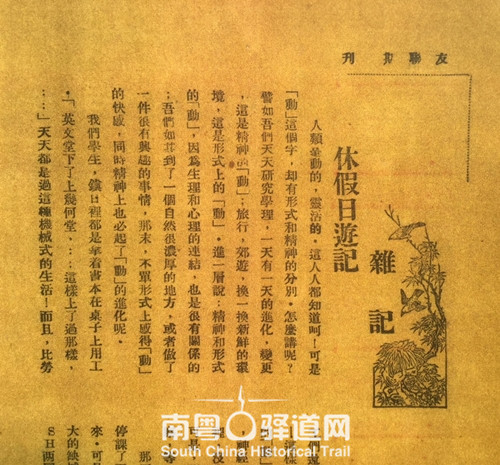 友聯期刊
雜記
休假日遊記
人類是動的,靈活的。這人人都知道呵!可是
「動」這個字,却有形式和精神的分別。怎麼講呢?
譬如吾們天天研究學理,一天有一天的進化,變更
,這是精神的「動」;旅行,郊遊,換一換新鮮的環
境,這是形式上的「動」。進一層說:精神和形式
的「動」,因爲生理和心理的連結,也是很有關係的
:吾們如其到了一個自然很濃厚的地方,或者做了
一件很有興趣的事情,那末,不單形式上感得「動」
的快感,同時精神上也必起了「動」的進化呢。
我們學生,鎮日裡都是拿着書本在桌子上用工
。「英文堂下了上幾何堂、…這樣上了過那樣,
…」天天都是過這種機械式的生活!而且,比勞
們
這樣
那
停課了
來。可
大的
SH兩
南粤驿道网
South China Historical Trail